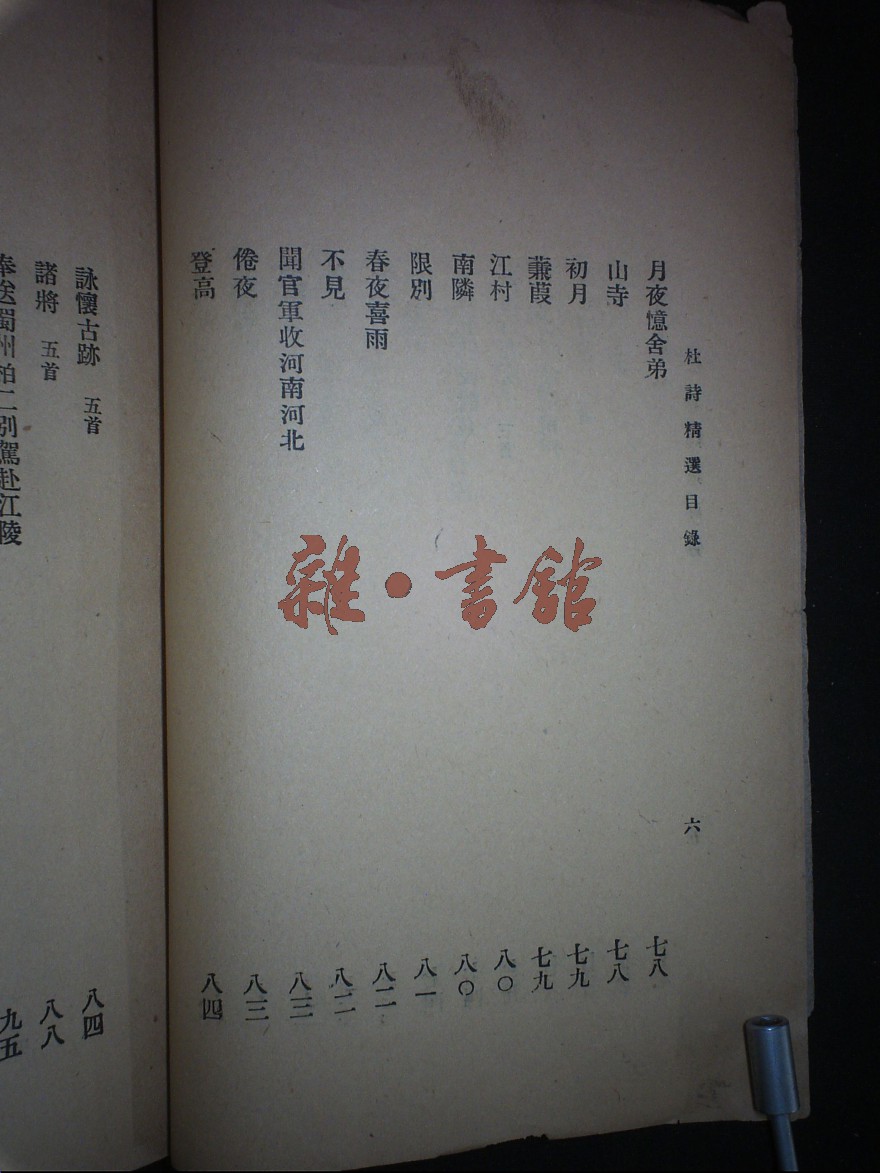 杜詩精選目錄 六
月夜憶舍弟 七八
山寺 七八
初月 七九
蒹葭 七九
江村 八〇
南隣 八〇
限別 八一
春夜喜雨 八二
不見 八二
聞官軍收河南河北 八三
倦夜 八三
登高 八四
詠懷古跡 五首 八四
諸將 五首 八八
奉送蜀州柏二別駕赴江陵 九五
雜·書館